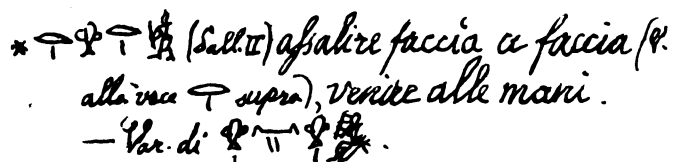 * (Sall. II) assalire faccia a faccia (V.
alla voce supra), venire alle mani.
— Var. di .